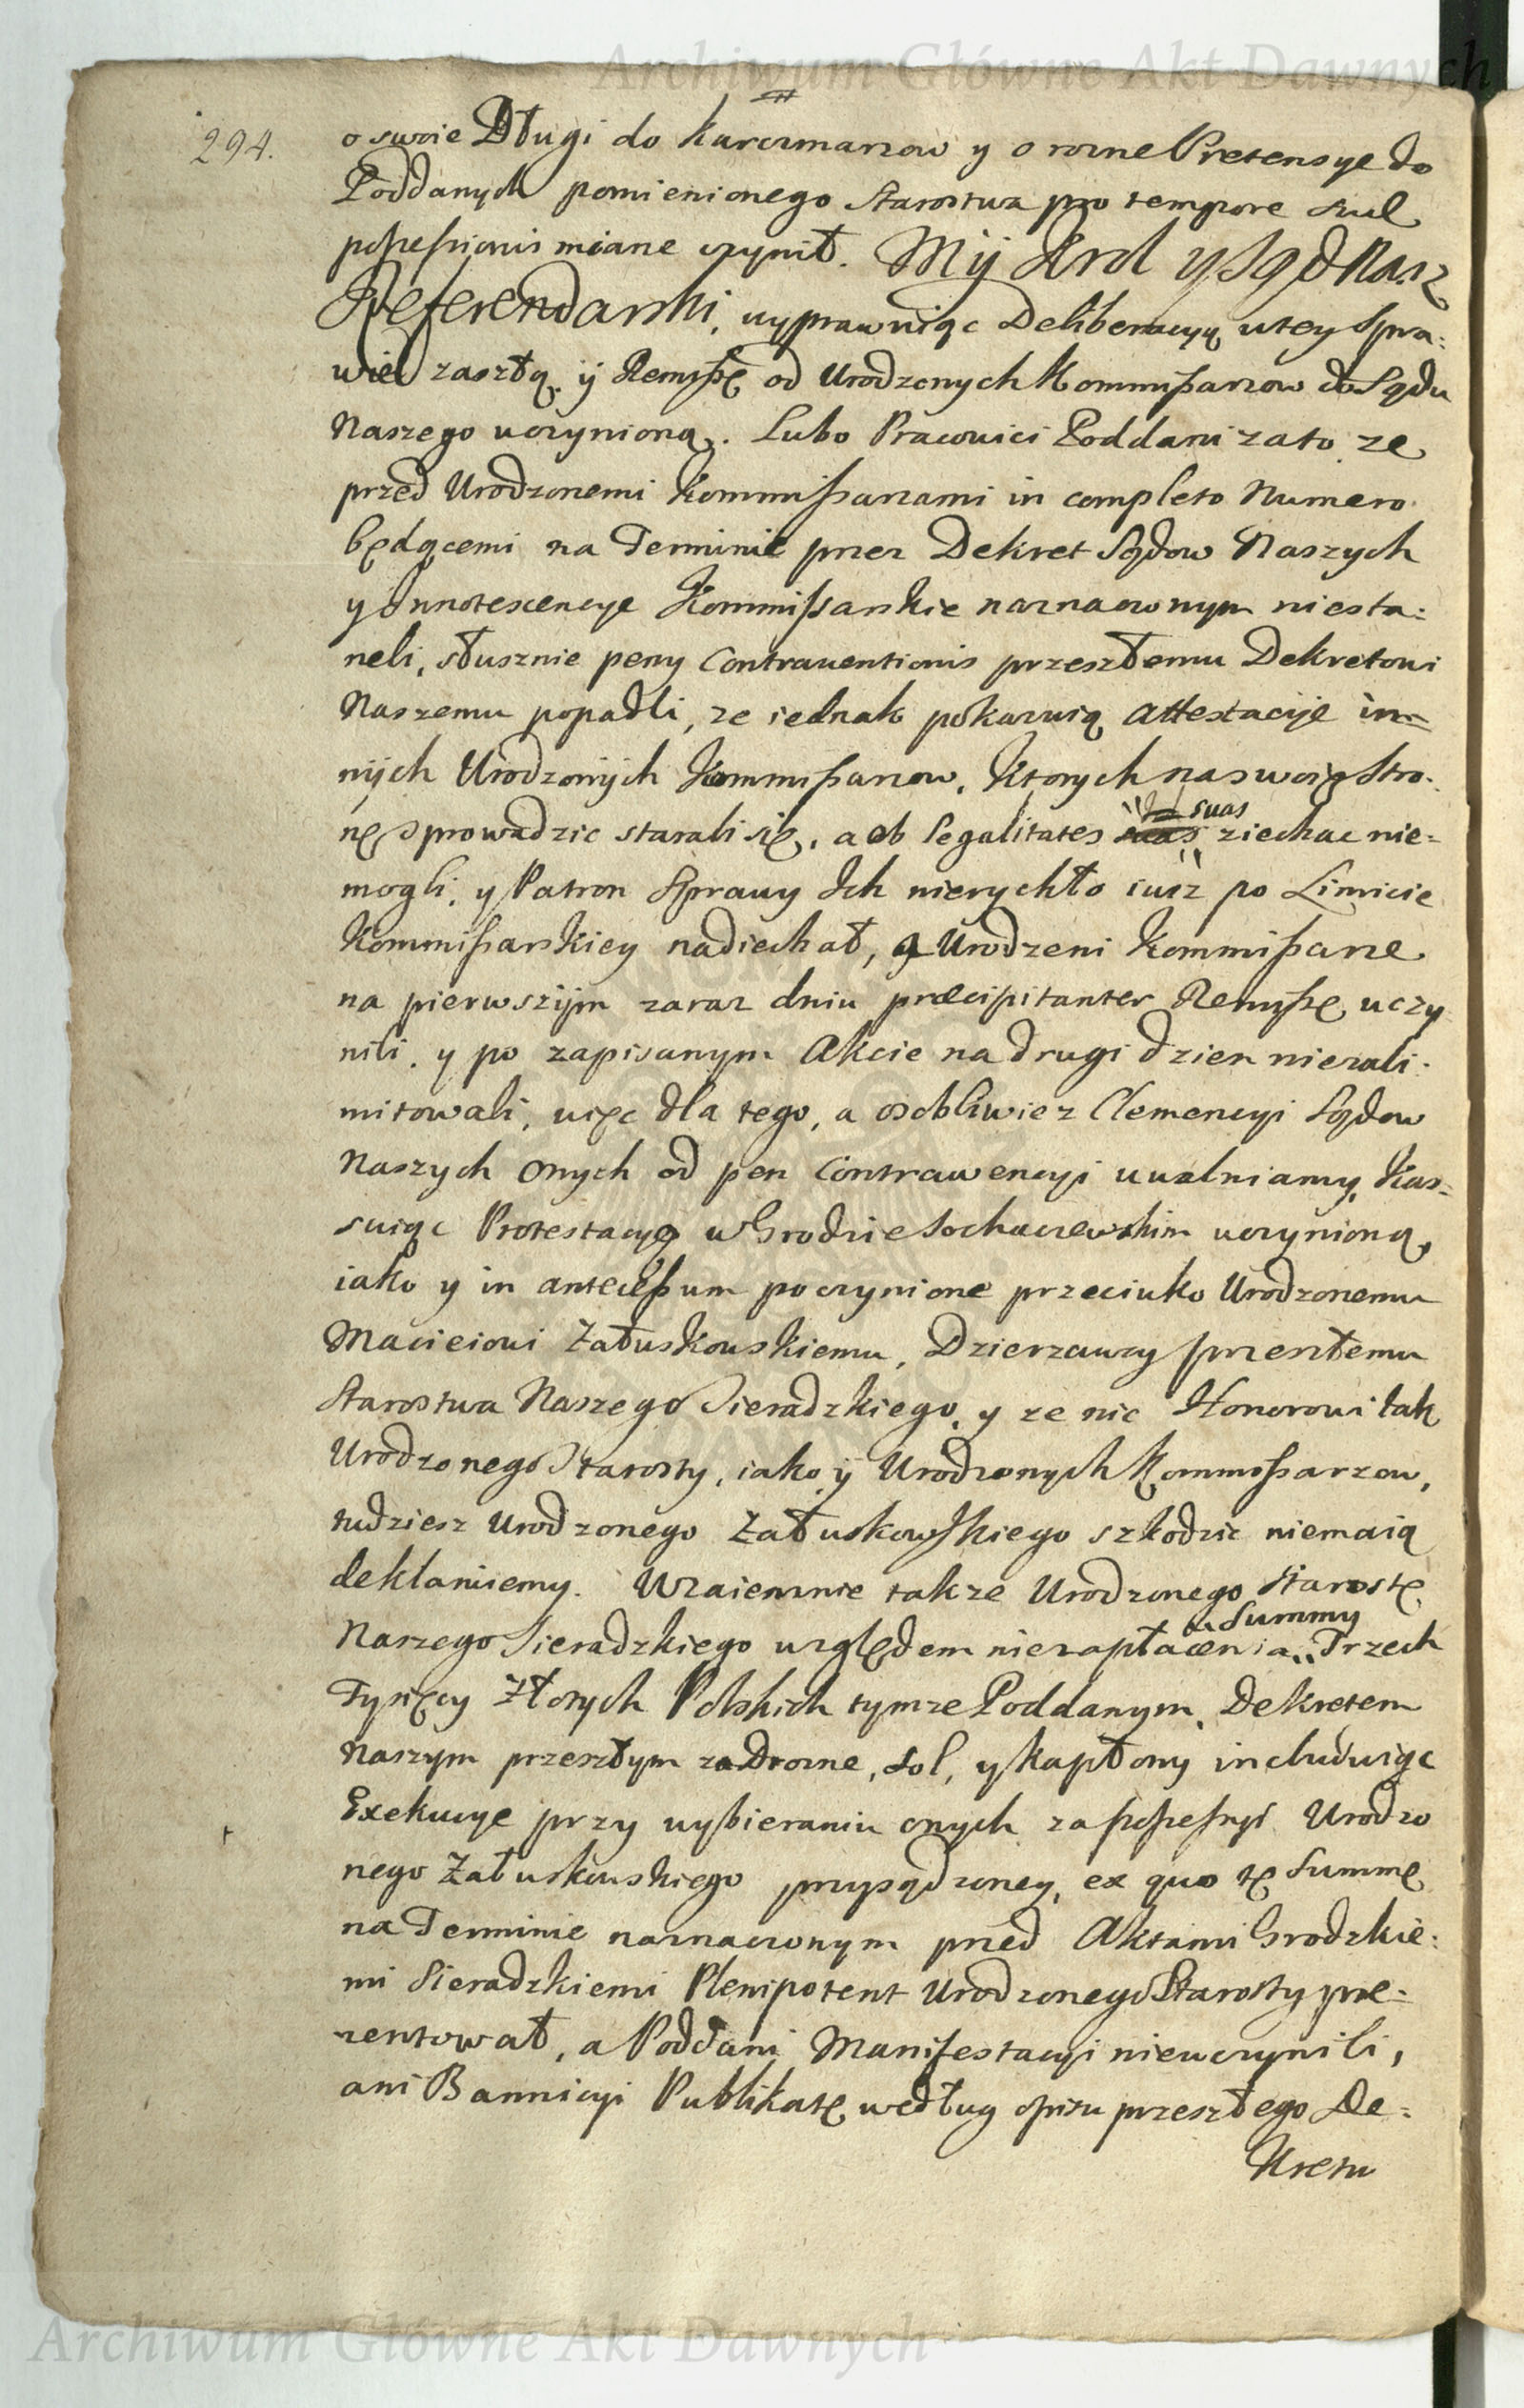 Archiwum Główne Akt Dawnych
294.
o swoie Długi do karczmarzow y o rozne Pretensye do
Poddanych pomienionego Starostwa pro tempore suæ
possessionis miane czynił. My Krol y Sąd Nasz
Referendarski, uyprawuiąc Deliberacyą w tey Spra:
wie zaszłą, y Remissę od Urodzonych Kommissarzow do Sądu
Naszego uczynioną. Lubo Pracowici Poddani zato ze
przed Urodzonemi Kommissarzami in completo Numero
będącemi na Terminie przez Dekret Sądow Naszych
y Innotescencye Kommissarskie naznaczonym niesta:
neli, słusznie peny Contraventionis przeszłemu Dekretowi
Naszemu popadli, ze iednak pokazuią Attestacije in=
nijch Urodzonijch Kommissarzow, ktorych na swoią Stro:
nę sprowadzic starali się, a ob legalitates suas ziechac nie=
mogli, y Patron Sprawy Ich nierychło iuz po Limicie
Kommissarskiey nadiechał, a Urodzeni Kommissarze
na pierwszijm zaraz dniu præcipitanter Remissę uczy
nili, y po zapisanym Akcie na drugi dzien niezali:
mitowali, więc dla tego, a osobliwie z Clemencyi Sądow
Naszych onych od pen Contrawencyi uwalniamy, Kas=
suiąc Protestacyą w Grodzie Sochaczewskim uczynioną,
iako y in antecessum poczynione przeciwko Urodzonemu
Macieiowi Załuskowskiemu, Dzierzawcy przeszłemu
Starostwa Naszego Sieradzkiego, y ze nic Honorowi tak
Urodzonego Starosty, iako y Urodzonych Kommissarzow,
tudziesz Urodzonego Załuskowskiego szkodzic niemaią
deklaruiemy. Wzaiemnie takze Urodzonego Starostę
Naszego Sieradzkiego względem niezapłacenia Summy Trzech
Tysięcy Złotych Polskich tymze Poddanym, Dekretem
Naszym przeszłym za Drozne, Sol, y kapłony includuiąc
Exekucye przy wybieraniu onych za possessyi Urodzo
nego Załuskowskiego przysądzoney, ex quo tę Summę
na Terminie naznaczonym przed Aktami Grodzkie:
mi Sieradzkiemi Plenipotent Urodzonego Starosty pre=
zentował, a Poddani Manifestacyi nieuczynili,
ani Bannicyi Publikatę według opisu przeszłego De=
kretu
Archiwum Główne Akt Dawnych